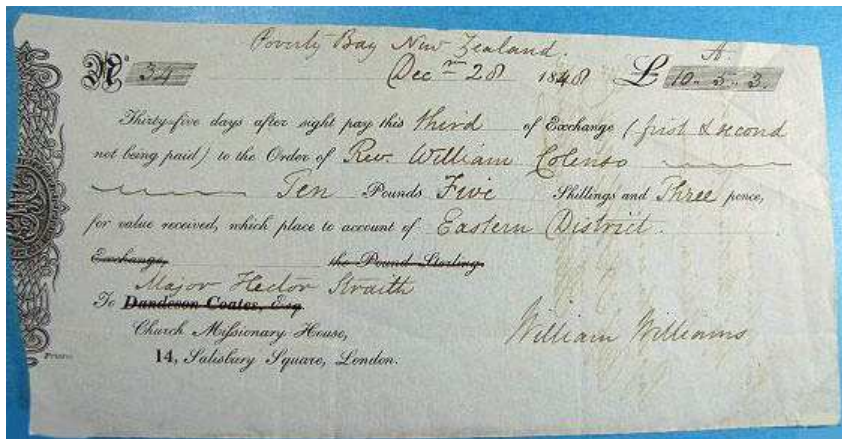 Poverty Bay New Zealand.
No. 34 Decr 28 1848 £ A. 10.. 5.. 3.
Thirty-five days after sight pay this third of Exchange (first & second
not being paid) to the Order of Rev. William Colenso
Ten Pounds Five Shillings and Three pence,
for value received, which place to account of Eastern District.
Exchange, the Pound Sterling.
Major Hector Straith
To Dandeson Coates, Esq.
Church Missionary House,
14, Salisbury Square, London.
William Williams